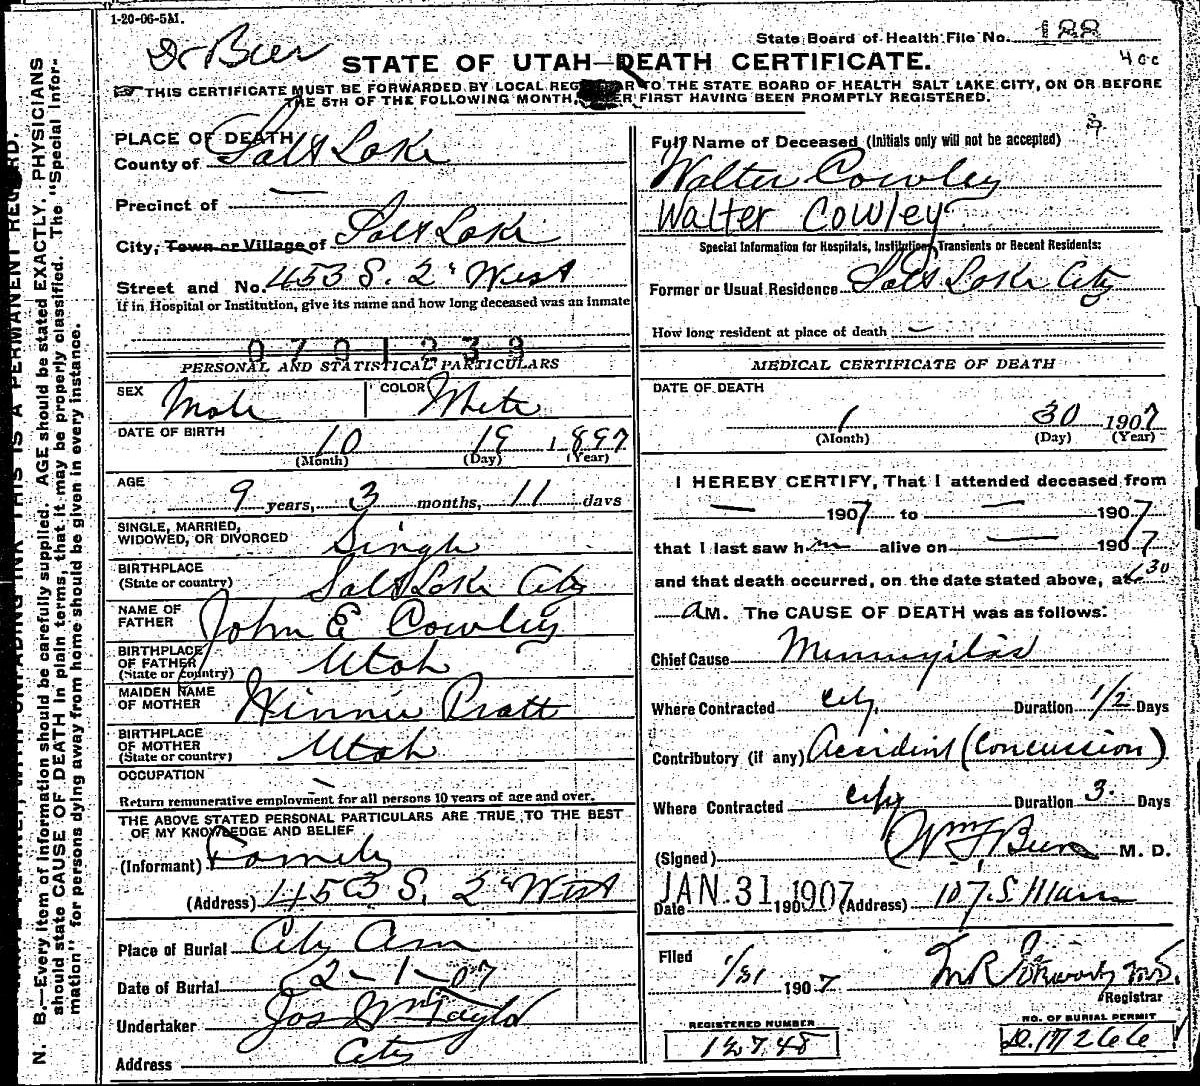 1-20-06-5M.
Dr Beer
State Board of Health File No. 188
STATE OF UTAH—DEATH CERTIFICATE.
400
THIS CERTIFICATE MUST BE FORWARDED BY LOCAL REG AR TO THE STATE BOARD OF HEALTH SALT LAKE CITY, ON OR BEFORE
THE 5TH OF THE FOLLOWING MONTH, ER FIRST HAVING BEEN PROMPTLY REGISTERED.
N. B.—Every item of information should be carefully supplied. AGE should be stated EXACTLY. PHYSICIANS
should state CAUSE OF DEATH in plain terms, that it may be properly classified. The "Special Infor-
mation" for persons dying away from home should be given in every instance.
PLACE OF DEATH
County of Salt Lake
Precinct of —
City, Town or Village of Salt Lake
Street and No. 453 S. 2" West
If in Hospital or Institution, give its name and how long deceased was an inmate
0791239
PERSONAL AND STATISTICAL PARTICULARS
SEX Male COLOR White
DATE OF BIRTH
10 19 1897
(Month) (Day) (Year)
AGE
9 years, 3 months, 11 days
SINGLE, MARRIED,
WIDOWED, OR DIVORCED Single
BIRTHPLACE
(State or country) Salt Lake City
NAME OF
FATHER John E Cowley
BIRTHPLACE
OF FATHER
(State or country) Utah
MAIDEN NAME
OF MOTHER Winnie Pratt
BIRTHPLACE
OF MOTHER
(State or country) Utah
OCCUPATION —
Return remunerative employment for all persons 10 years of age and over.
THE ABOVE STATED PERSONAL PARTICULARS ARE TRUE TO THE BEST
OF MY KNOWLEDGE AND BELIEF
(Informant) Family
(Address) 453 S. 2" West
Place of Burial City Cem
Date of Burial 2-1-07
Undertaker Jos Wm Taylor
Address City
3.
Full Name of Deceased (Initials only will not be accepted)
Walter Cowley
Walter Cowley
Special Information for Hospitals, Institutions, Transients or Recent Residents:
Former or Usual Residence Salt Lake City
How long resident at place of death —
MEDICAL CERTIFICATE OF DEATH
DATE OF DEATH
1 30 1907
(Month) (Day) (Year)
I HEREBY CERTIFY, That I attended deceased from
— 1907 to — 1907
that I last saw him alive on — 1907
and that death occurred, on the date stated above, at 30
a M. The CAUSE OF DEATH was as follows:
Chief Cause Meningitis
Where Contracted City Duration 1/2 Days
Contributory (if any) Accident (Concussion)
Where Contracted City Duration 3 Days
(Signed) Wm F Beer M. D.
JAN. 31 1907
Date 190 (Address) 107 S Main
Filed 1/31 1907
M R
Registrar
REGISTERED NUMBER
12748
NO. OF BURIAL PERMIT
D. M 266